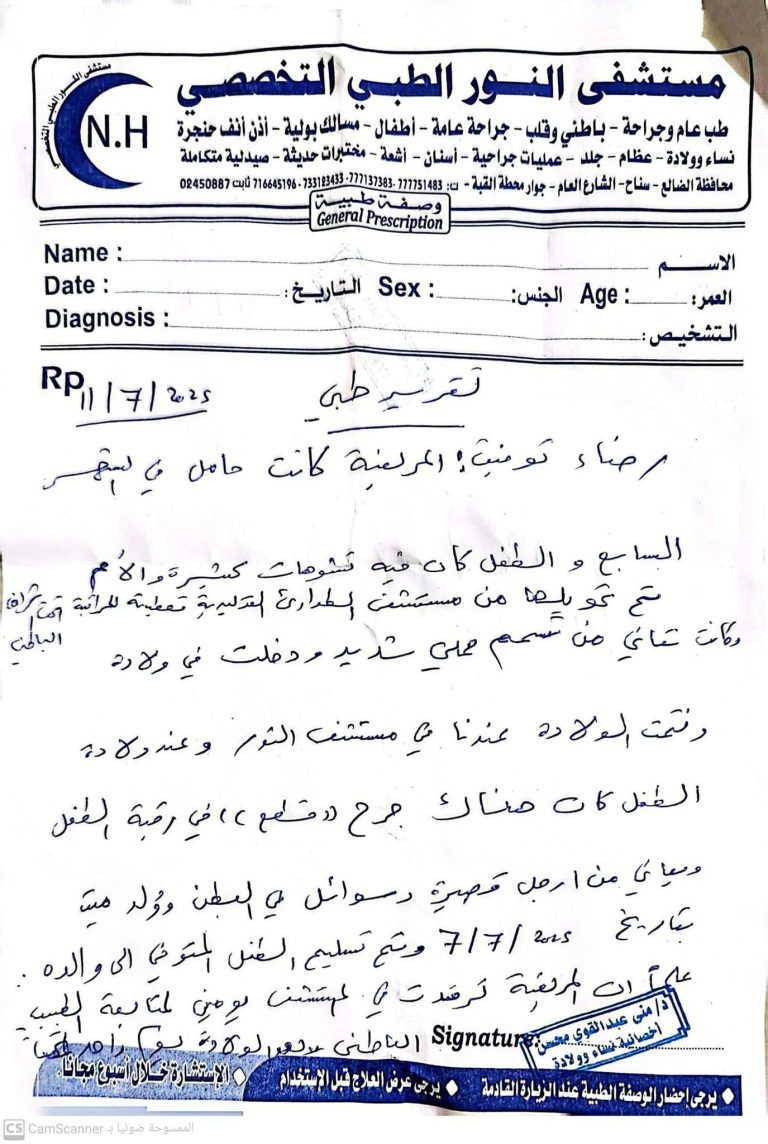 مستشفى النور الطبي التخصصي
مستشفى النور الطبي التخصصي
N.H
طب عام وجراحة - باطني وقلب - جراحة عامة - أطفال - مسالك بولية - أذن أنف حنجرة
نساء وولادة - عظام - جلد - عمليات جراحية - أسنان - أشعة - مختبرات حديثة - صيدلية متكاملة
محافظة الضالع - سناح - الشارع العام - جوار محطة القبة - ت: 777751483 - 777137383 - 733123433 - 716645196 ثابت 02450887
وصفة طبية
General Prescription
Name : الاسم
Date : التاريخ : Sex : الجنس: Age : العمر:
Diagnosis : التشخيص:
Rp 11/7/2025 تقرير طبي
رضاء توفيق: المريضة كانت حامل في الشهر
السابع و الطفل كان فيه تشوهات كثيرة والأم
تم تحويلها من مستشفى الطوارئ التوليدية للمراقبة تحت اشراف الباطني
وكانت تعاني من تسمم حملي شديد ودخلت في ولادة
وتمت الولادة عندنا في مستشفى النور وعند ولادة
الطفل كان هناك جرح ((قطع)) في رقبة الطفل
ويعاني من ارجل قصيرة وسوائل في البطن وولد ميت
بتاريخ 7/7/2025 وتم تسليم الطفل المتوفي الى والده.
علماً ان المريضة ترقدت في المستشفى يومين لمتابعة الطبيب
الباطني وبعد الولادة يوم واحد
Signature:
د/ منى عبدالقوي محسن
أخصائية نساء وولادة
يرجى إحضار الوصفة الطبية عند الزيارة القادمة ◆ يرجى عرض العلاج قبل الإستخدام ◆ الإستشارة خلال أسبوع مجاناً
CS CamScanner الممسوحة ضوئيا بـ